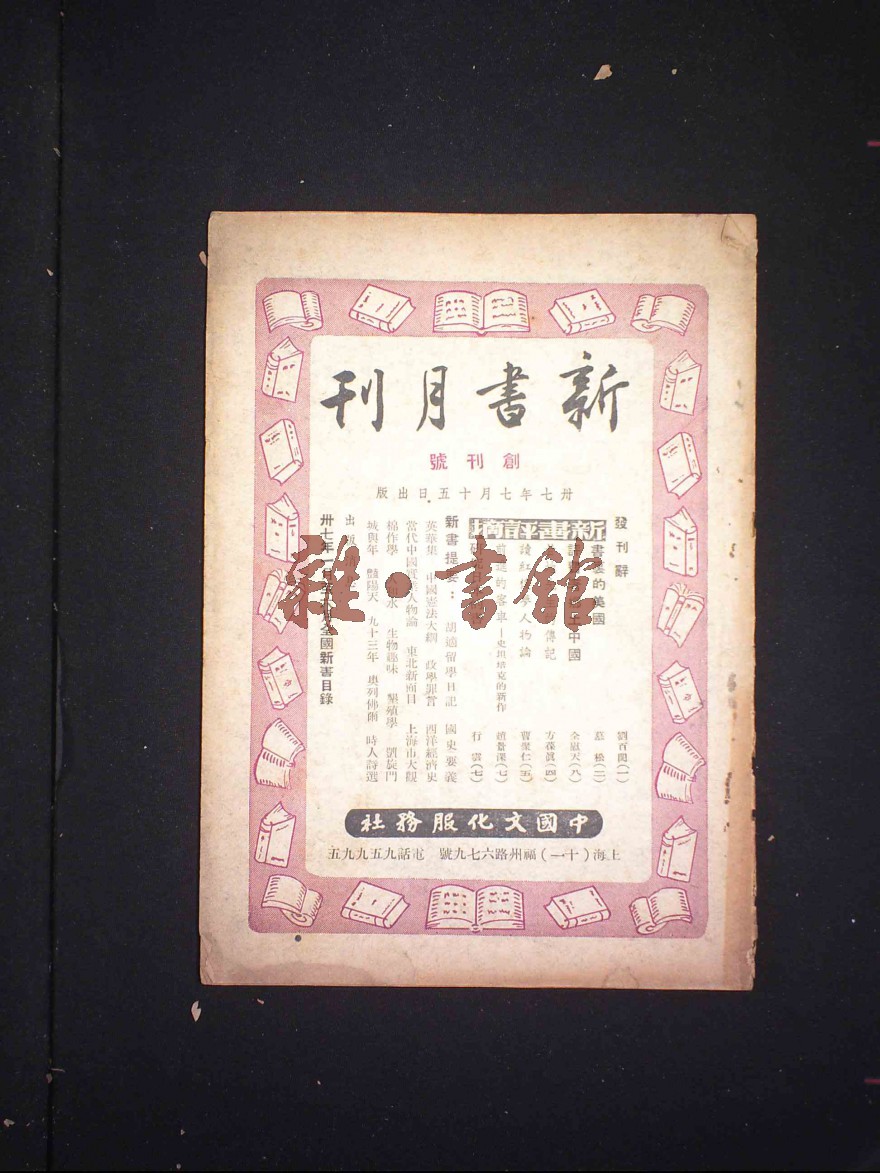 新書月刊
創刊號
卅七年七月十五日出版
發刊辭 劉百閔(一)
書生的美國 慕松(二)
中國 全慰天(八)
傳記 方葆真(四)
讀紅 夢人物論 曹聚仁(五)
的客車—史坦培克的新作 趙景深(七)
行雲(七)
新書評摘
新書提要：胡適留學日記 國史要義
英華集 中國憲法大綱 政學罪言 西洋經濟史
當代中國實 人物論 東北新面目 上海市大觀
棉作學 水 生物趣味 墾殖學 凱旋門
城與年 豔陽天 九十三年 奧列佛爾 時人詩選
出版
卅七年一月 全國新書目錄
雜·書館
中國文化服務社
上海(十一)福州路六七九號 電話九五九九五